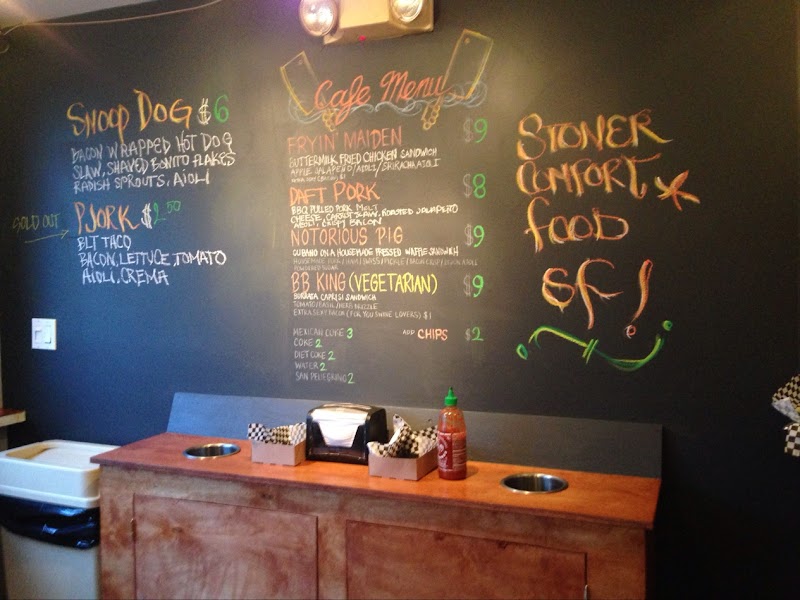 SNOOP DOG $6
BACON WRAPPED HOT DOG
SLAW, SHAVED BONITO FLAKES
RADISH SPROUTS, AIOLI
SOLD OUT
PJORK $2.50
BLT TACO
BACON, LETTUCE, TOMATO
AIOLI, CREMA
Cafe Menu
FRYIN' MAIDEN $9
BUTTERMILK FRIED CHICKEN SANDWICH
APPLE JALAPEÑO/AIOLI/SRIRACHA AIOLI
DAFT PORK $8
BBQ PULLED PORK MELT
CHEESE, CARROT SLAW, ROASTED JALAPEÑO
AIOLI, CRISPY BACON
NOTORIOUS PIG $9
CUBANO ON A HOUSEMADE PRESSED WAFFLE SANDWICH
BB KING (VEGETARIAN) $9
BURRATA CAPRISI SANDWICH
TOMATO/BASIL/HERB DRIZZLE
EXTRA SILKY BACON (FOR YOU SWINE LOVERS) $1
MEXICAN COKE 3
COKE 2
DIET COKE 2
WATER 2
SAN PELLEGRINO 2
ADD CHIPS $2
STONER
COMFORT
FOOD
SF!